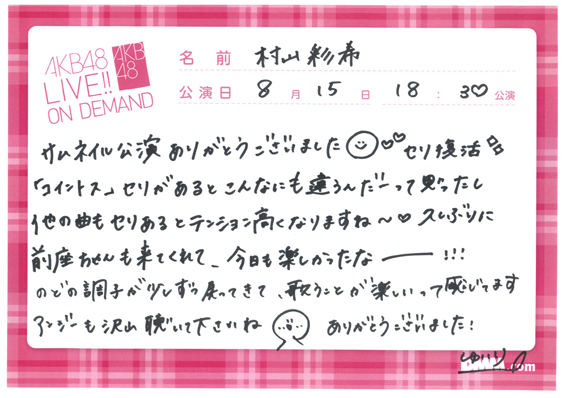 AKB48
LIVE!!
ON DEMAND
AKB
48
名前 村山彩希
公演日 8月15日 18:30公演
サムネイル公演ありがとうございました セリ復活
「コイントス」セリがあるとこんなにも違うんだーって思ったし
他の曲もセリあるとテンション高くなりますね〜♡ 久しぶりに
前座ちゃんも来てくれて、今日も楽しかったなー!!!
のどの調子が少しずつ戻ってきて、歌うことが楽しいって感じてます
アンジーも沢山聴いて下さいね ありがとうございました!
ゆいりー
.com